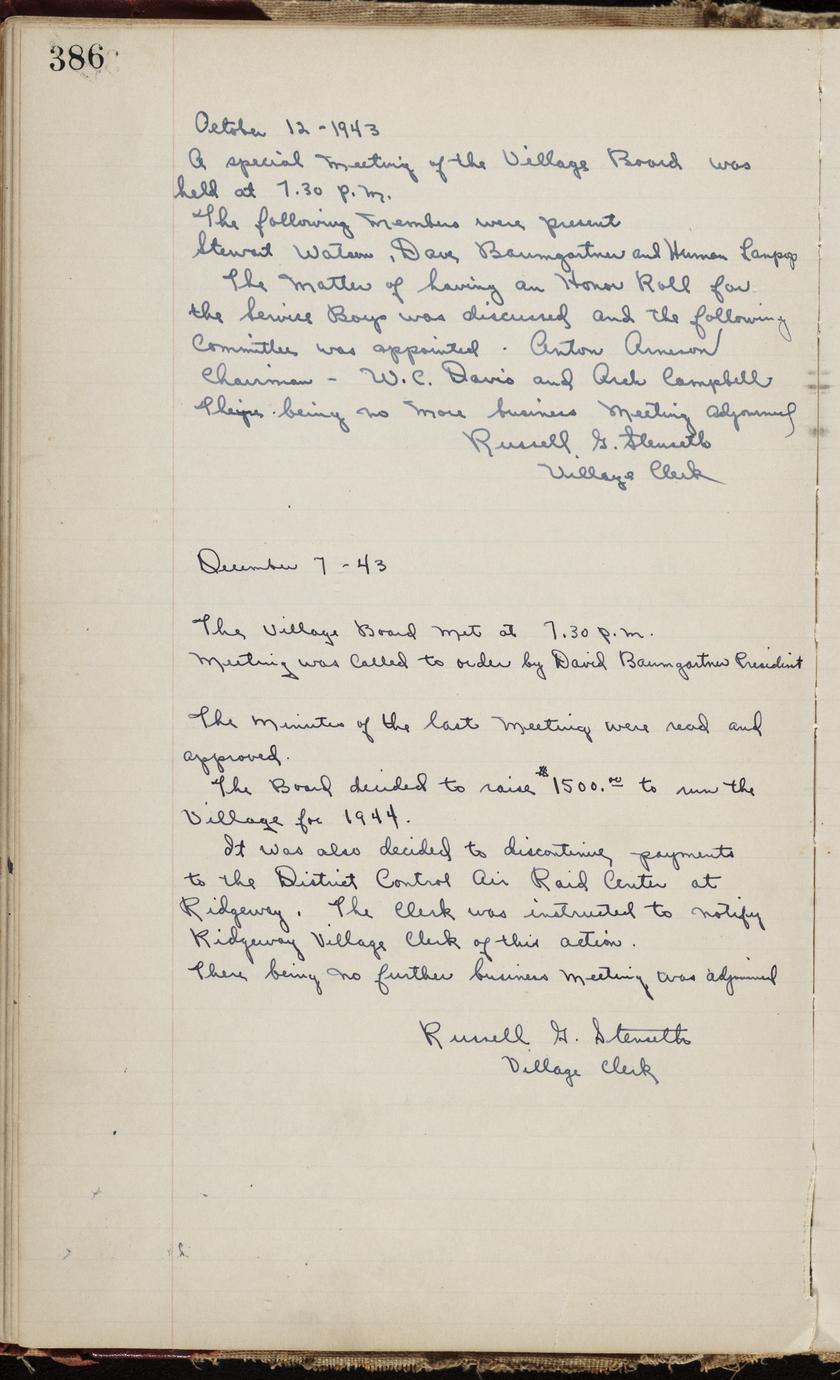 386
October 12 - 1943
A special Meeting of the Village Board was
held at 7.30 p.m.
The following Members were present
Stewart Watson, Dave Baumgartner and Herman Lampop
The Matter of having an Honor Roll for
the Service Boys was discussed and the following
Committee was appointed . Anton Arneson
Chairman - W.C. Davis and Arch Campbell
There being no More business Meeting adjourned
Russell G. Stenseth
Village Clerk
December 7 - 43
The Village Board Met at 7.30 p.m.
Meeting was Called to order by David Baumgartner President
The Minutes of the last Meeting were read and
approved.
The Board decided to raise $1500.00 to run the
Village for 1944.
It was also decided to discontinue payments
to the District Control Air Raid Center at
Ridgeway. The Clerk was instructed to notify
Ridgeway Village Clerk of this action.
There being no further business Meeting was adjourned
Russell G. Stenseth
Village Clerk